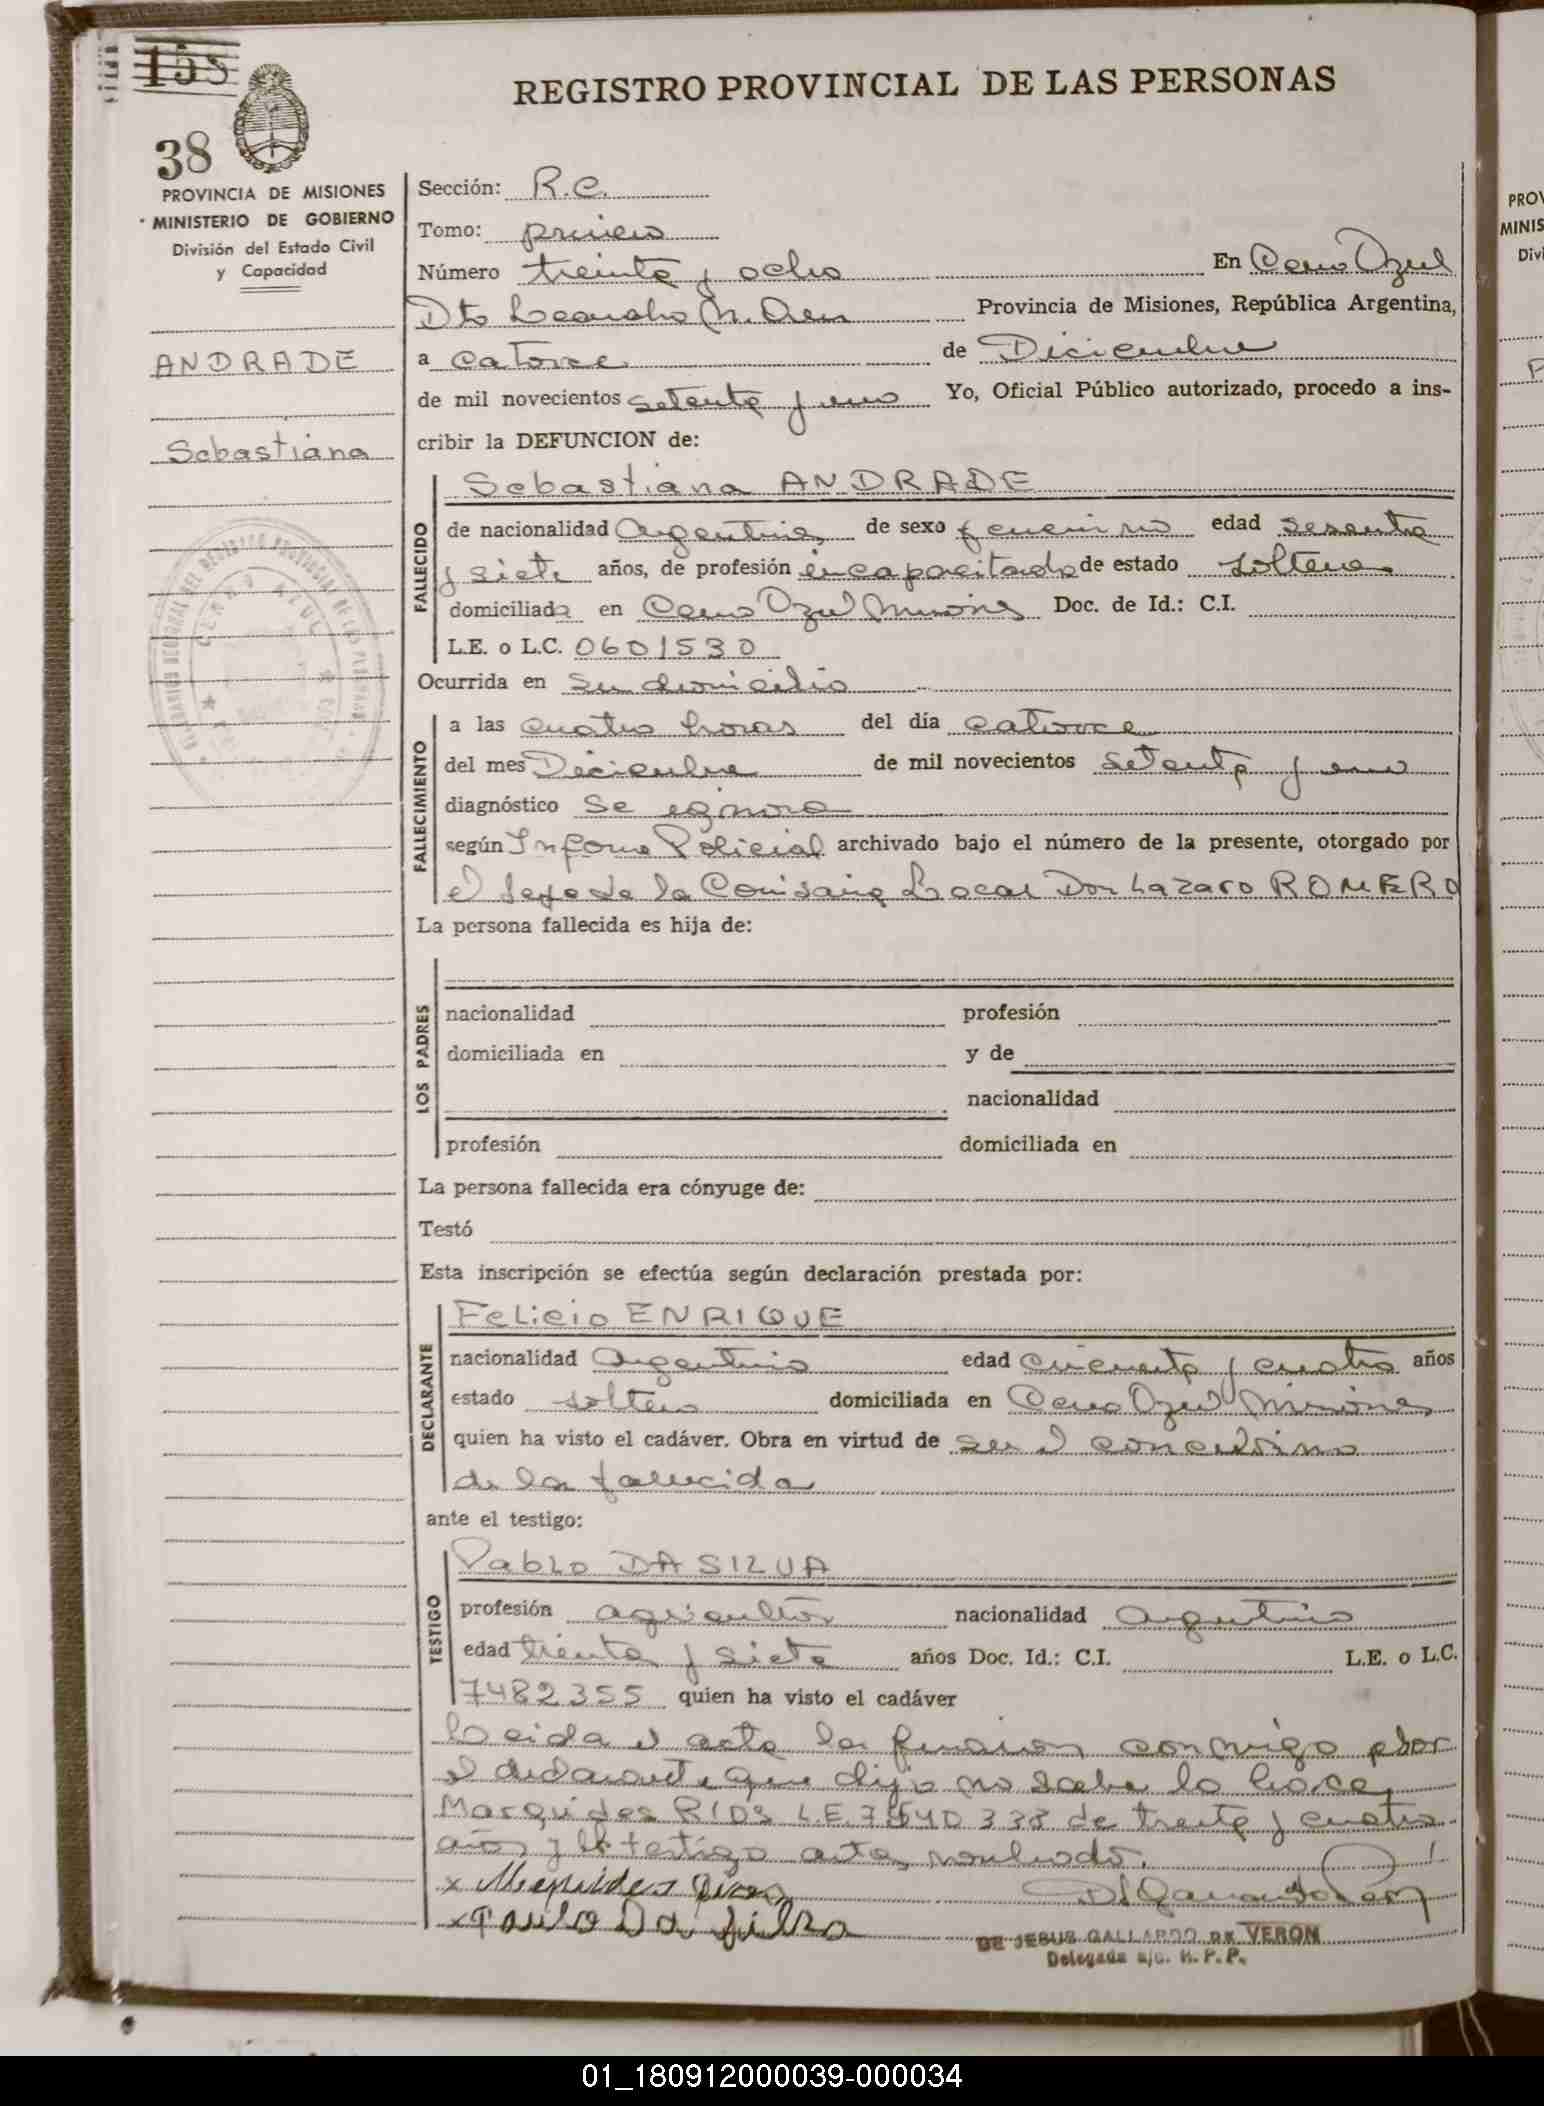 158
38
REGISTRO PROVINCIAL DE LAS PERSONAS
PROVINCIA DE MISIONES
MINISTERIO DE GOBIERNO
División del Estado Civil
y Capacidad
ANDRADE
Sebastiana
Sección: R.C.
Tomo: primero
Número treinta y ocho En Cerro Azul
Dto Leandro N. Alem Provincia de Misiones, República Argentina,
a catorce de Diciembre
de mil novecientos setenta y uno Yo, Oficial Público autorizado, procedo a ins-
cribir la DEFUNCION de:
FALLECIDO
Sebastiana ANDRADE
de nacionalidad Argentina de sexo femenino edad sesenta
y siete años, de profesión incapacitada de estado soltera
domiciliada en Cerro Azul Misiones Doc. de Id.: C.I.
L.E. o L.C. 0601530
Ocurrida en su domicilio
FALLECIMIENTO
a las cuatro horas del día catorce
del mes Diciembre de mil novecientos setenta y uno
diagnóstico se ignora
según Informe Policial archivado bajo el número de la presente, otorgado por
el Jefe de la Comisaria Local Don Lazaro ROMERO
La persona fallecida es hija de:
LOS PADRES
nacionalidad profesión
domiciliada en y de
nacionalidad
profesión domiciliada en
La persona fallecida era cónyuge de:
Testó
Esta inscripción se efectúa según declaración prestada por:
DECLARANTE
Felicio ENRIQUE
nacionalidad Argentino edad cincuenta y cuatro años
estado soltero domiciliada en Cerro Azul Misiones
quien ha visto el cadáver. Obra en virtud de ser el concubino
de la fallecida
ante el testigo:
TESTIGO
Pablo DA SILVA
profesión agricultor nacionalidad Argentino
edad treinta y siete años Doc. Id.: C.I. L.E. o L.C.
7482355 quien ha visto el cadáver
Leida el acta la firman conmigo por
el declarante que dijo no saber lo hace
Marquides RIOS L.E. 7540338 de treinta y cuatro
años y el testigo antes nombrado.
x Rios
x Da Silva
DE JESUS GALLARDO DE VERON
Delegada a/c. R. P. P.
PROV
MINIS
Divi
01_180912000039-000034